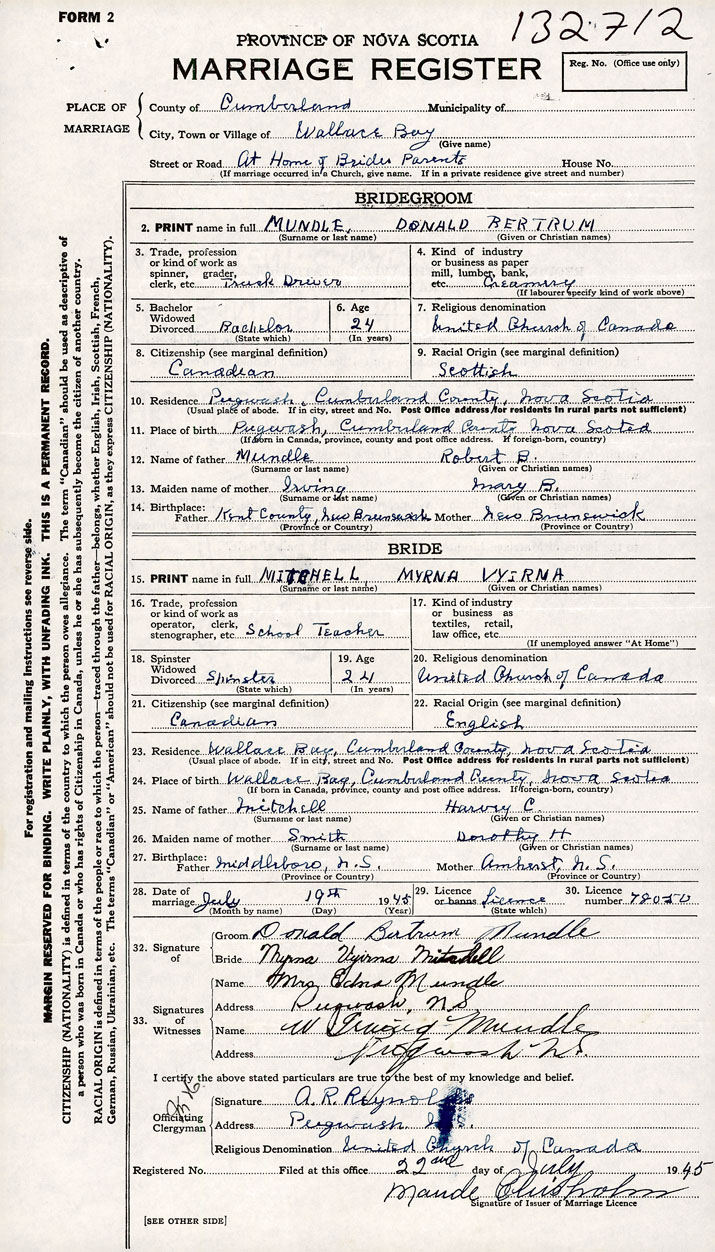 FORM 2
132712
PROVINCE OF NOVA SCOTIA
MARRIAGE REGISTER
Reg. No. (Office use only)
PLACE OF MARRIAGE
County of Cumberland Municipality of
City, Town or Village of Wallace Bay
(Give name)
Street or Road At Home of Brides Parents House No.
(If marriage occurred in a Church, give name. If in a private residence give street and number)
BRIDEGROOM
2. PRINT name in full MUNDLE, DONALD BERTRUM
(Surname or last name) (Given or Christian names)
3. Trade, profession or kind of work as spinner, grader, clerk, etc. Truck Driver
4. Kind of industry or business as paper mill, lumber, bank, etc. Creamery
(If labourer specify kind of work above)
5. Bachelor Widowed Divorced Bachelor
(State which)
6. Age 24
(In years)
7. Religious denomination
United Church of Canada
8. Citizenship (see marginal definition)
Canadian
9. Racial Origin (see marginal definition)
Scottish
10. Residence Pugwash, Cumberland County, Nova Scotia
(Usual place of abode. If in city, street and No. Post Office address for residents in rural parts not sufficient)
11. Place of birth Pugwash, Cumberland County Nova Scotia
(If born in Canada, province, county and post office address. If foreign-born, country)
12. Name of father Mundle Robert B.
(Surname or last name) (Given or Christian names)
13. Maiden name of mother Irving Mary B.
(Surname or last name) (Given or Christian names)
14. Birthplace: Father Kent County, New Brunswick Mother New Brunswick
(Province or Country) (Province or Country)
BRIDE
15. PRINT name in full MITCHELL, MYRNA VYIRNA
(Surname or last name) (Given or Christian names)
16. Trade, profession or kind of work as operator, clerk, stenographer, etc. School Teacher
17. Kind of industry or business as textiles, retail, law office, etc.
(If unemployed answer "At Home")
18. Spinster Widowed Divorced Spinster
(State which)
19. Age 24
(In years)
20. Religious denomination
United Church of Canada
21. Citizenship (see marginal definition)
Canadian
22. Racial Origin (see marginal definition)
English
23. Residence Wallace Bay, Cumberland County, Nova Scotia
(Usual place of abode. If in city, street and No. Post Office address for residents in rural parts not sufficient)
24. Place of birth Wallace Bay, Cumberland County, Nova Scotia
(If born in Canada, province, county and post office address. If foreign-born, country)
25. Name of father Mitchell Harvey C.
(Surname or last name) (Given or Christian names)
26. Maiden name of mother Smith Dorothy H
(Surname or last name) (Given or Christian names)
27. Birthplace: Father Middleboro, N.S. Mother Amherst, N.S.
(Province or Country) (Province or Country)
28. Date of marriage July 19th 1945
(Month by name) (Day) (Year)
29. Licence or banns Licence
(State which)
30. Licence number 78050
32. Signature of
Groom Donald Bertrum Mundle
Bride Myrna Vyirna Mitchell
33. Signatures of Witnesses
Name Mrs Edna Mundle
Address Pugwash, N.S
Name W Irving Mundle
Address Pugwash N.S.
I certify the above stated particulars are true to the best of my knowledge and belief.
Officiating Clergyman
Signature A. R. Reynolds
Address Pugwash,
Religious Denomination United Church of Canada
Registered No. Filed at this office 22nd day of July 1945
Maude Chisholm
Signature of Issuer of Marriage Licence
[SEE OTHER SIDE]
For registration and mailing instructions see reverse side.
MARGIN RESERVED FOR BINDING. WRITE PLAINLY, WITH UNFADING INK. THIS IS A PERMANENT RECORD.
CITIZENSHIP (NATIONALITY) is defined in terms of the country to which the person owes allegiance. The term "Canadian" should be used as descriptive of
a person who was born in Canada or who has rights of Citizenship in Canada, unless he or she has subsequently become the citizen of another country.
RACIAL ORIGIN is defined in terms of the people or race to which the person—traced through the father—belongs, whether English, Irish, Scottish, French,
German, Russian, Ukrainian, etc. The terms "Canadian" or "American" should not be used for RACIAL ORIGIN, as they express CITIZENSHIP (NATIONALITY).